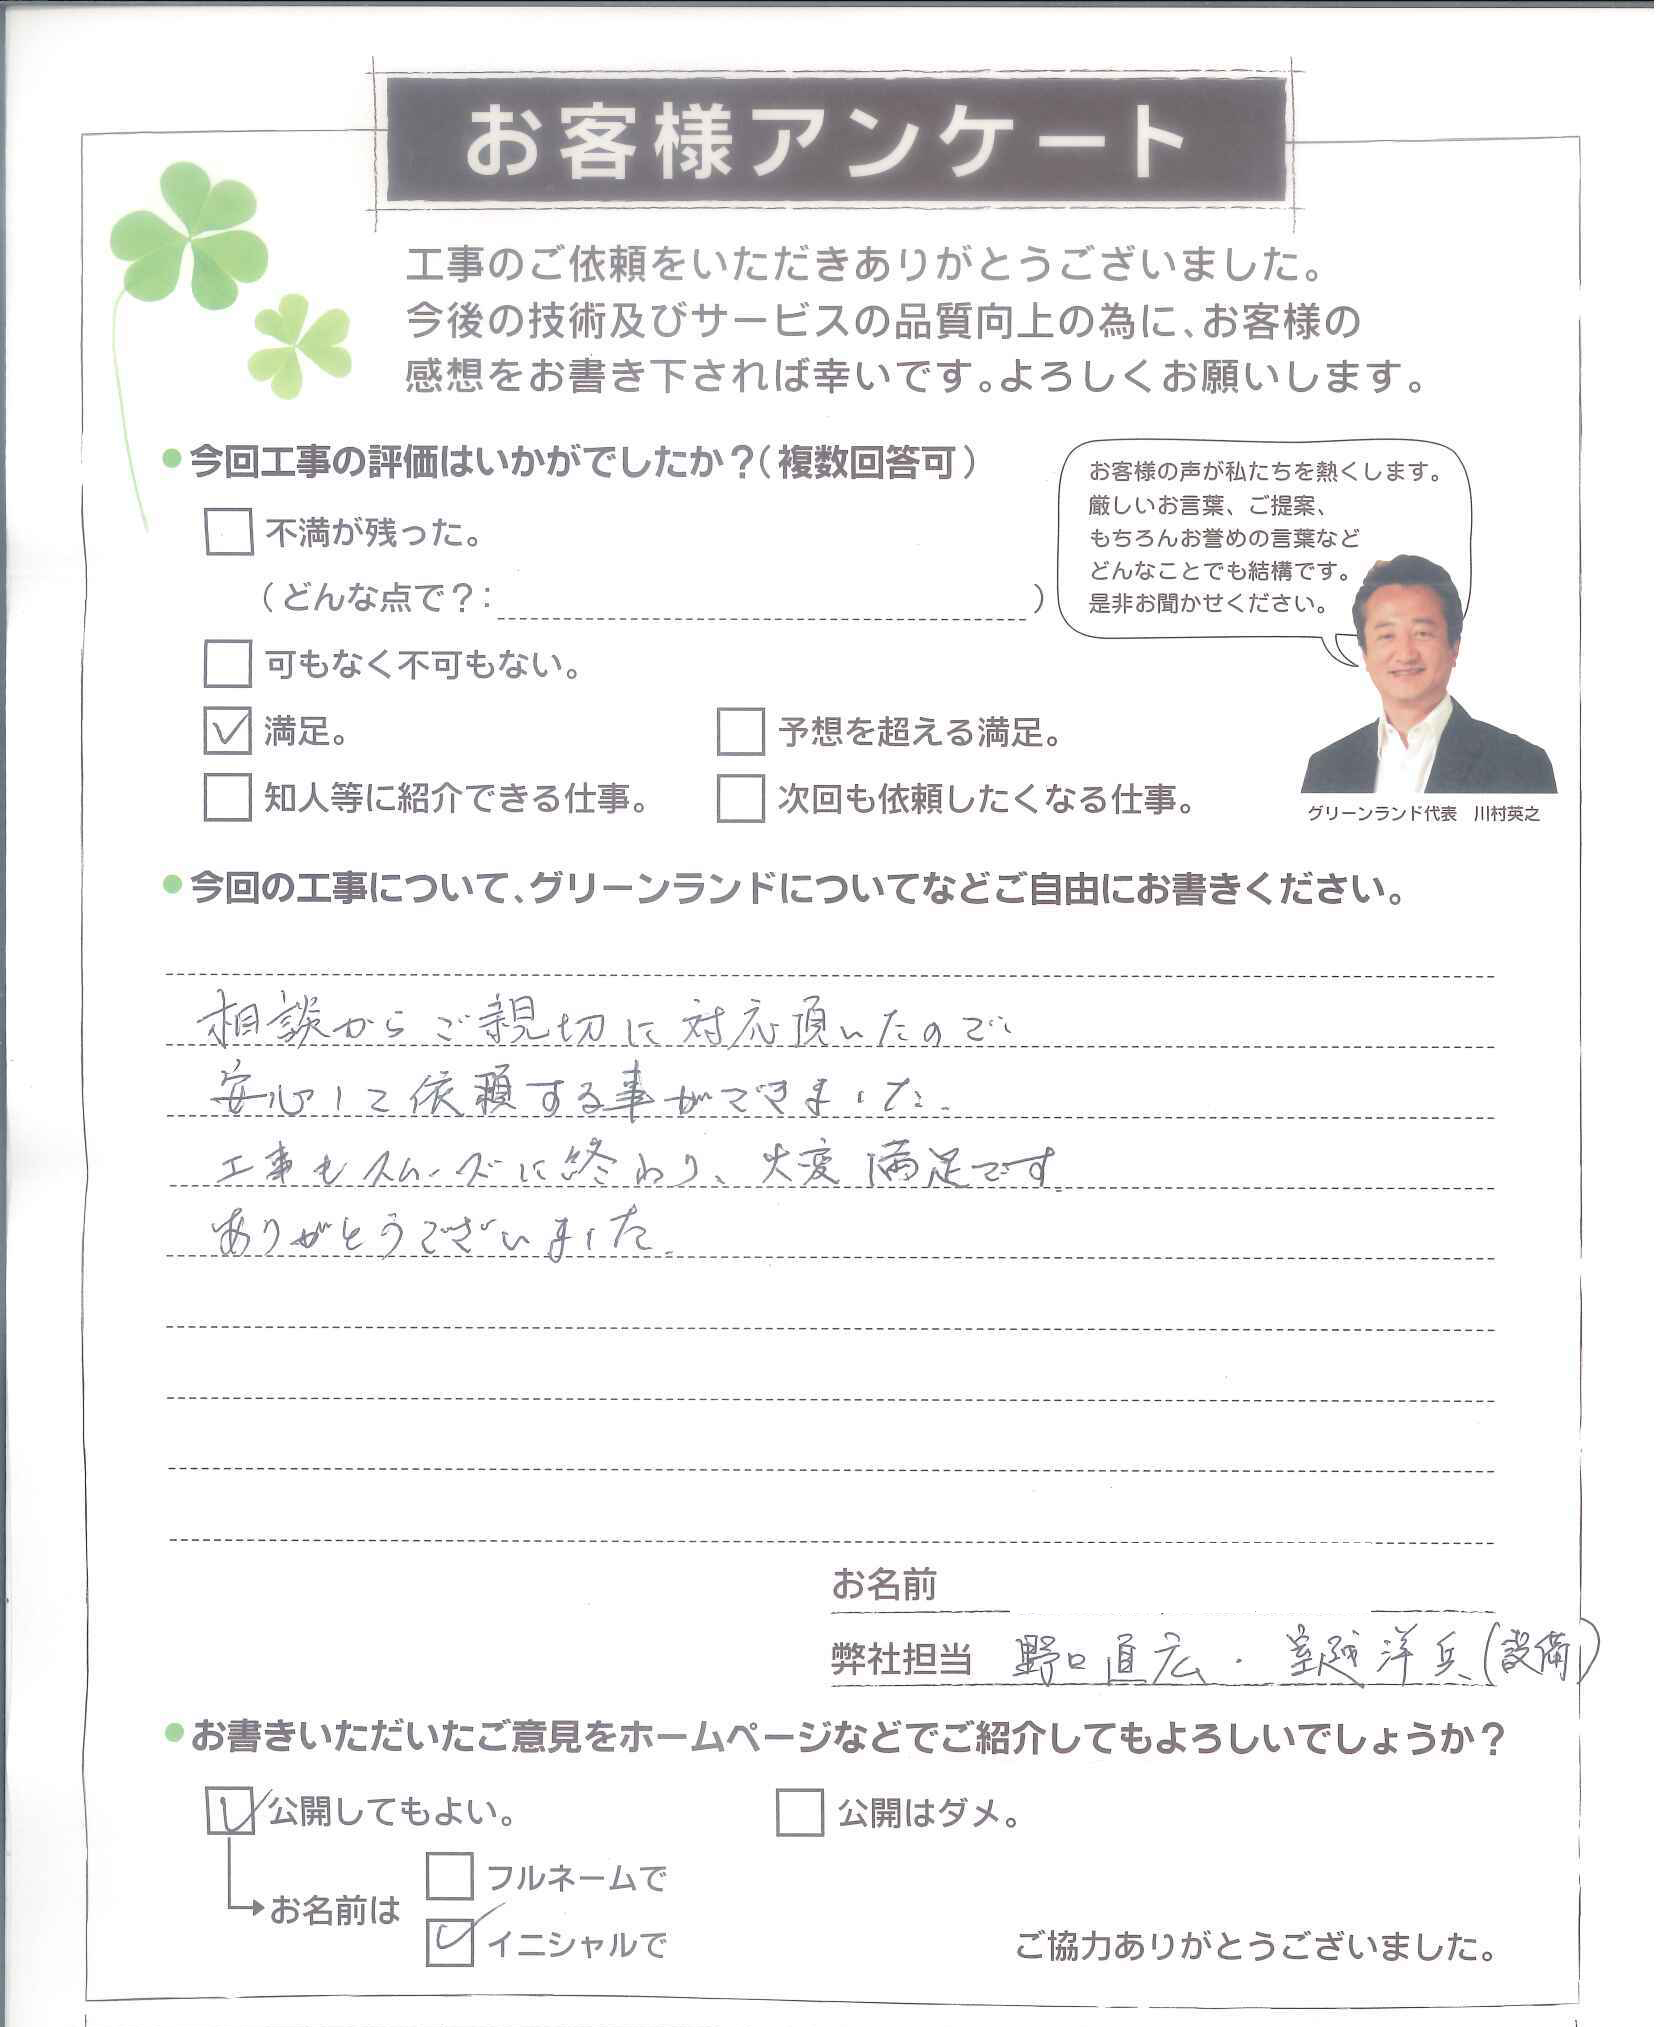 お客様アンケート
工事のご依頼をいただきありがとうございました。
今後の技術及びサービスの品質向上の為に、お客様の
感想をお書き下されば幸いです。よろしくお願いします。
今回工事の評価はいかがでしたか?(複数回答可)
不満が残った。
(どんな点で?: )
可もなく不可もない。
満足。
予想を超える満足。
知人等に紹介できる仕事。
次回も依頼したくなる仕事。
お客様の声が私たちを熱くします。
厳しいお言葉、ご提案、
もちろんお誉めの言葉など
どんなことでも結構です。
是非お聞かせください。
グリーンランド代表 川村英之
今回の工事について、グリーンランドについてなどご自由にお書きください。
相談からご親切に対応頂いたので
安心して依頼する事ができました。
工事もスムーズに終わり、大変満足です。
ありがとうございました。
お名前
弊社担当 野口直広・室越洋兵(設備)
お書きいただいたご意見をホームページなどでご紹介してもよろしいでしょうか?
公開してもよい。
公開はダメ。
お名前は
フルネームで
イニシャルで
ご協力ありがとうございました。